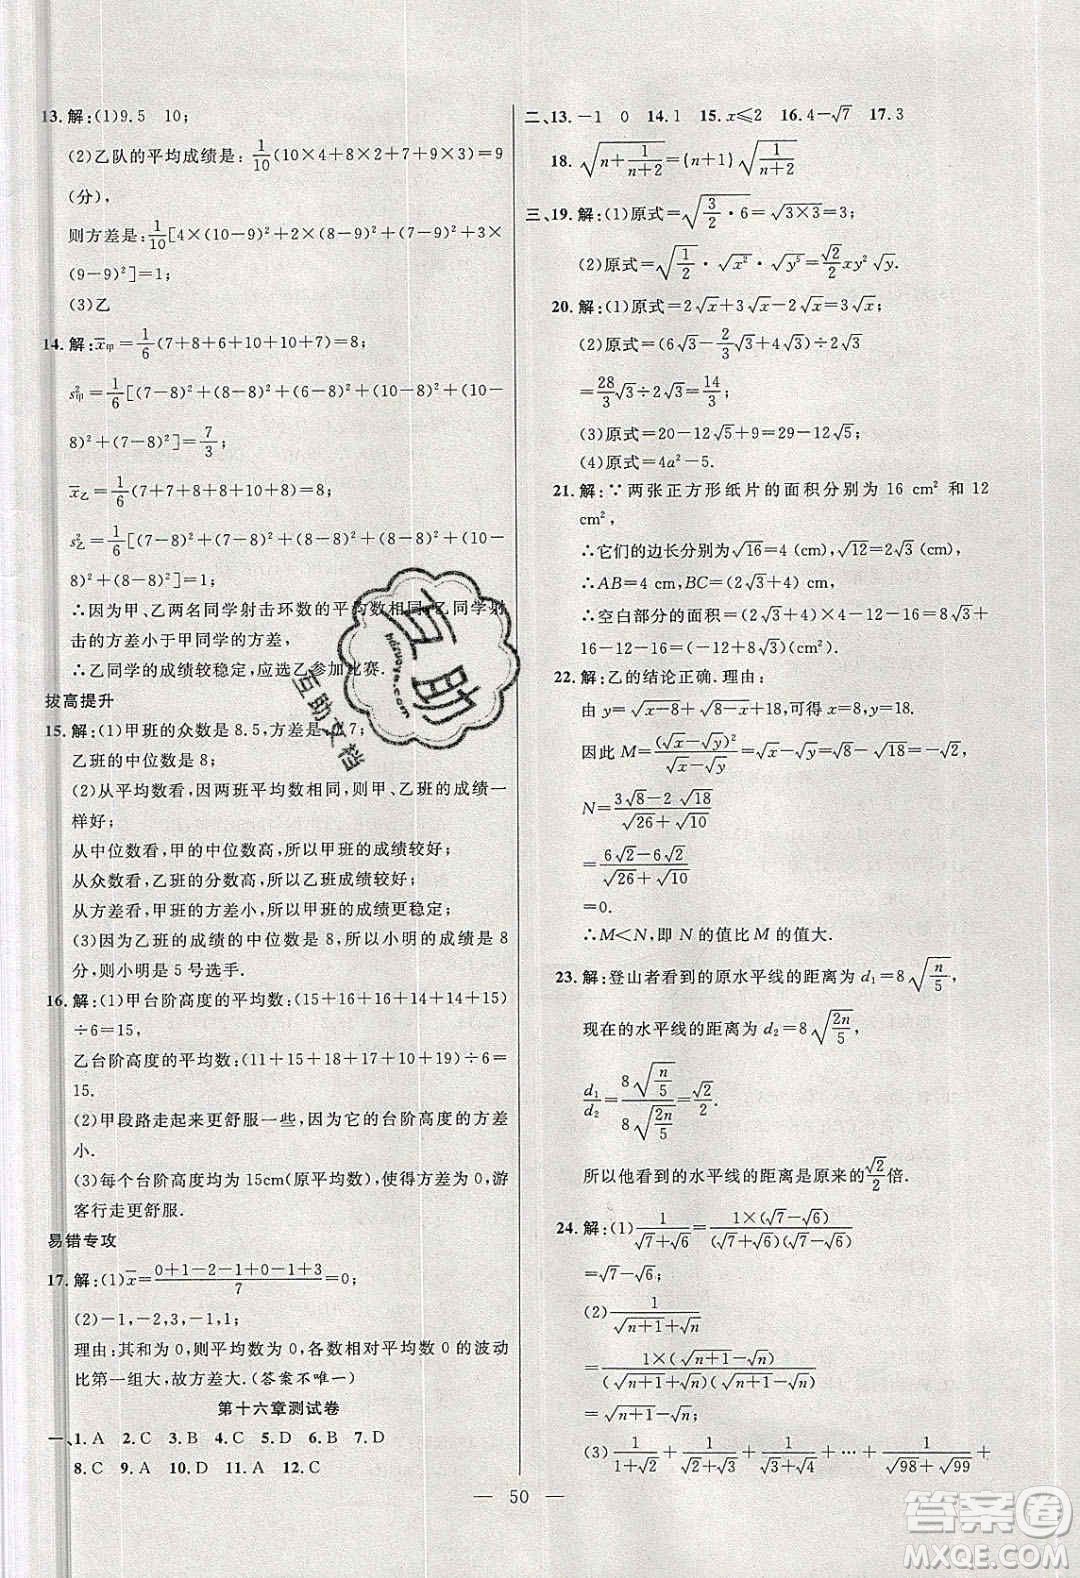 13. 解:(1)9.5 10;
(2)乙队的平均成绩是: 1/10(10×4+8×2+7+9×3)=9
(分),
则方差是: 1/10[4×(10-9)²+2×(8-9)²+(7-9)²+3×
(9-9)²]=1;
(3)乙
14. 解: x̄甲=1/6(7+8+6+10+10+7)=8;
s²甲=1/6[(7-8)²+(8-8)²+(6-8)²+(10-8)²+(10-
8)²+(7-8)²]=7/3;
x̄乙=1/6(7+7+8+8+10+8)=8;
s²乙=1/6[(7-8)²+(7-8)²+(8-8)²+(8-8)²+(10-
8)²+(8-8)²]=1;
∴因为甲、乙两名同学射击环数的平均数相同,乙同学射
击的方差小于甲同学的方差,
∴乙同学的成绩较稳定,应选乙参加比赛.
拔高提升
15. 解:(1)甲班的众数是8.5,方差是0.7;
乙班的中位数是8;
(2)从平均数看,因两班平均数相同,则甲、乙班的成绩一
样好;
从中位数看,甲的中位数高,所以甲班的成绩较好;
从众数看,乙班的分数高,所以乙班成绩较好;
从方差看,甲班的方差小,所以甲班的成绩更稳定;
(3)因为乙班的成绩的中位数是8,所以小明的成绩是8
分,则小明是5号选手.
16. 解:(1)甲台阶高度的平均数:(15+16+16+14+14+15)
÷6=15,
乙台阶高度的平均数:(11+15+18+17+10+19)÷6=
15.
(2)甲段路走起来更舒服一些,因为它的台阶高度的方差
小.
(3)每个台阶高度均为15cm(原平均数),使得方差为0,游
客行走更舒服.
易错专攻
17. 解:(1)x̄=(0+1-2-1+0-1+3)/7=0;
(2)-1,-2,3,-1,1;
理由:其和为0,则平均数为0,各数相对平均数0的波动
比第一组大,故方差大.(答案不唯一)
第十六章测试卷
一、1. A 2. C 3. B 4. C 5. D 6. B 7. D
8. C 9. A 10. D 11. A 12. C
二、13. -1 0 14. 1 15. x≤2 16. 4-√7 17. 3
18. √(n+1/(n+2))=(n+1)√(1/(n+2))
三、19. 解:(1)原式=√(3/2·6)=√(3×3)=3;
(2)原式=√(1/2)·√x²·√y⁵=(√2/2)xy²√y.
20. 解:(1)原式=2√x+3√x-2√x=3√x;
(2)原式=(6√3-(2/3)√3+4√3)÷2√3
=(28/3)√3÷2√3=14/3;
(3)原式=20-12√5+9=29-12√5;
(4)原式=4a²-5.
21. 解:∵两张正方形纸片的面积分别为16 cm² 和 12
cm²,
∴它们的边长分别为√16=4 (cm),√12=2√3 (cm),
∴AB=4 cm,BC=(2√3+4) cm,
∴空白部分的面积=(2√3+4)×4-12-16=8√3+
16-12-16=(-12+8√3) cm².
22. 解:乙的结论正确.理由:
由 y=√(x-8)+√(8-x)+18,可得 x=8,y=18.
因此 M=(√x-√y)²/(√x-√y)=√x-√y=√8-√18=-√2,
N=(3√8-2√18)/(√26+√10)
=(6√2-6√2)/(√26+√10)
=0.
∴M<N,即 N 的值比 M 的值大.
23. 解:登山者看到的原水平线的距离为 d₁=8√(n/5),
现在的水平线的距离为 d₂=8√(2n/5),
d₁/d₂=8√(n/5)/8√(2n/5)=√2/2.
所以他看到的水平线的距离是原来的√2/2倍.
24. 解:(1)1/(√7+√6)=1×(√7-√6)/((√7+√6)(√7-√6))
=√7-√6;
(2)1/(√(n+1)+√n)
=1×(√(n+1)-√n)/((√(n+1)+√n)(√(n+1)-√n))
=√(n+1)-√n;
(3)1/(1+√2)+1/(√2+√3)+1/(√3+√4)+…+1/(√98+√99)+
50
互助
hdzuoye.com
互助文档
答案圈
MXQE.COM